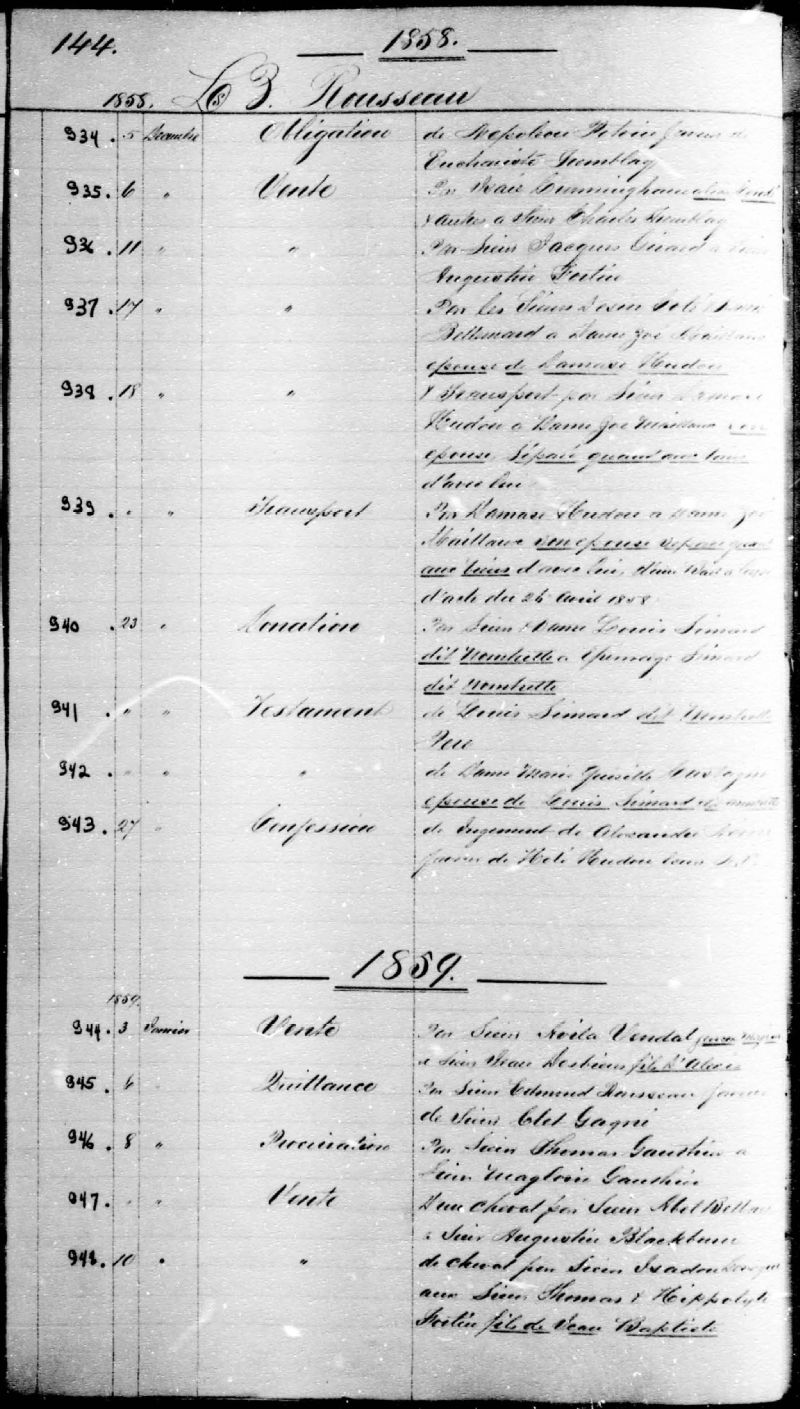 144. 1858.
1858. Ls Z. Rousseau
934. 5 Décembre Obligation de Napoléon Potvin faveur de
Euchariste Tremblay
935. 6 " Vente Par Isaïe Cunningham
& autres a Sieur Charles Tremblay
936. 11 " " Par Sieur Jacques Girard a Sieur
Augustin Fortin
937. 17 " " Par les Sieurs
a Dame Zoé Maillard
épouse de Damase Hudon
938. 18 " " & Transport par Sieur Damase
Hudon a Dame Zoé Maillard son
épouse séparée quand aux biens
d'avec lui
939. " " Transport Par Damase Hudon a Dame Zoé
Maillard son épouse séparée quand
aux biens d'avec lui, d'une
d'acte du 26 avril 1858
940. 23 " Donation Par Sieur & Dame Louis Simard
dit Lombrette a Simard
dit Lombrette
941. " " Testament de Louis Simard dit Lombrette
Père
942. " " " de Dame Marie
épouse de Louis Simard dit Lombrette
943. 27 " Confession de Jugement de Alexandre
faveur de Hudon
1859.
1859.
944. 3 Janvier Vente Par Sieur Avila Vendal
a Sieur Jean Desbiens fils d'Alexis
945. 6 " Quittance Par Sieur Edmund Rousseau faveur
de Sieur Clet Gagné
946. 8 " Procuration Par Sieur Thomas Gauthier a
Sieur Magloire Gauthier
947. " " Vente D'un cheval par Sieur Abel
a Sieur Augustin Blackburn
948. 10 " " de cheval par Sieur
aux Sieurs Thomas & Hippolyte
Fortin fils de Jean Baptiste